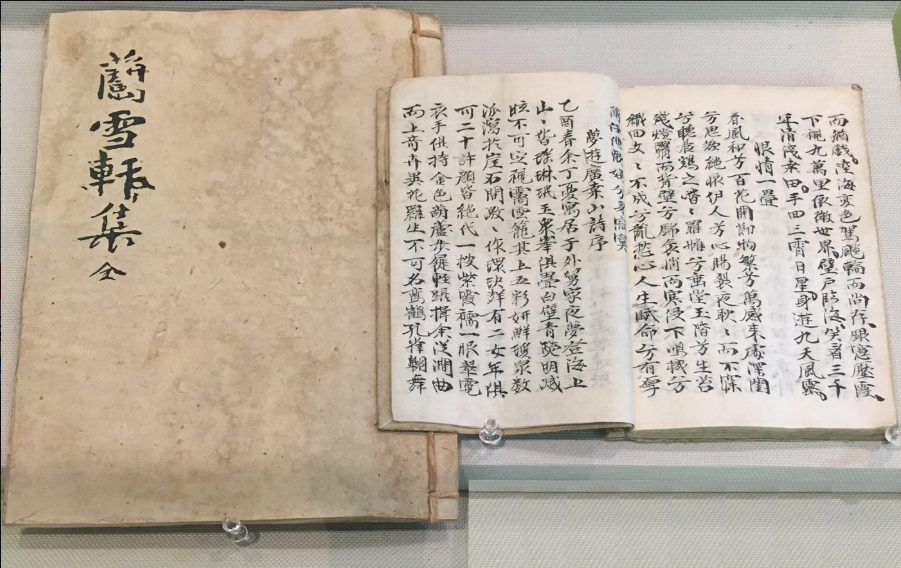 蘭雪軒集 全
而猶戱。陸海変色駕飈輪而尚存。銀窓壓霞、
下視九萬里依微世界。璧戶臨海、笑看三千
年清淺桒田。手回三霄日星身遊九天風露。
恨情一疊
春風和兮百花開節物繁兮萬感来處深閨
兮思欲絶懷伊人兮心膓裂夜耿〻而不寐
兮聽晨鷄之喈〻羅帷兮垂堂玉階兮生苔
殘燈翳而背壁兮錦衾悄而寒侵下鳴機兮
織回文〻不成兮亂愁心人生賦命兮有厚
薄任他歡娛兮身寂寞
夢遊廣桒山詩序
乙酉春余丁憂寓居于外舅家夜夢登海上
山〻皆瑤琳珉玉衆峯俱疊白璧青熒明滅
眩不可定視霱雲籠其上五彩姸鮮瓊泉數
派瀉於崖石間激〻作環玦聲有二女年俱
可二十許顔皆絶代一披紫霞襦一服翠霓
衣手俱持金色葫蘆步屣輕躡揖余從澗曲
而上奇卉異花羅生不可名鸞鶴孔雀翺舞